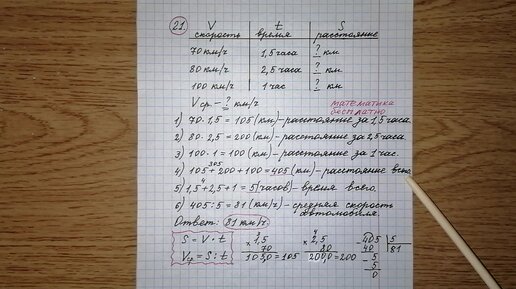 21. V t S
скорость время расстояние
70 км/ч 1,5 часа ? км
80 км/ч 2,5 часа ? км
100 км/ч 1 час ? км
Vср. - ? км/ч
математика
бесплатно
1) 70 · 1,5 = 105 (км) - расстояние за 1,5 часа.
2) 80 · 2,5 = 200 (км) - расстояние за 2,5 часа
3) 100 · 1 = 100 (км) - расстояние за 1 час.
305
4) 105 + 200 + 100 = 405 (км) - расстояние всего
4
5) 1,5 + 2,5 + 1 = 5 (часов) - время всего.
6) 405 : 5 = 81 (км/ч) - средняя скорость
автомобиля.
Ответ: 81 км/ч
S = V · t
Vср = S : t
3
× 1,5
70
105,0 = 105
4
× 2,5
80
200,0 = 200
- 405 | 5
40 | 81
- 5
5
0